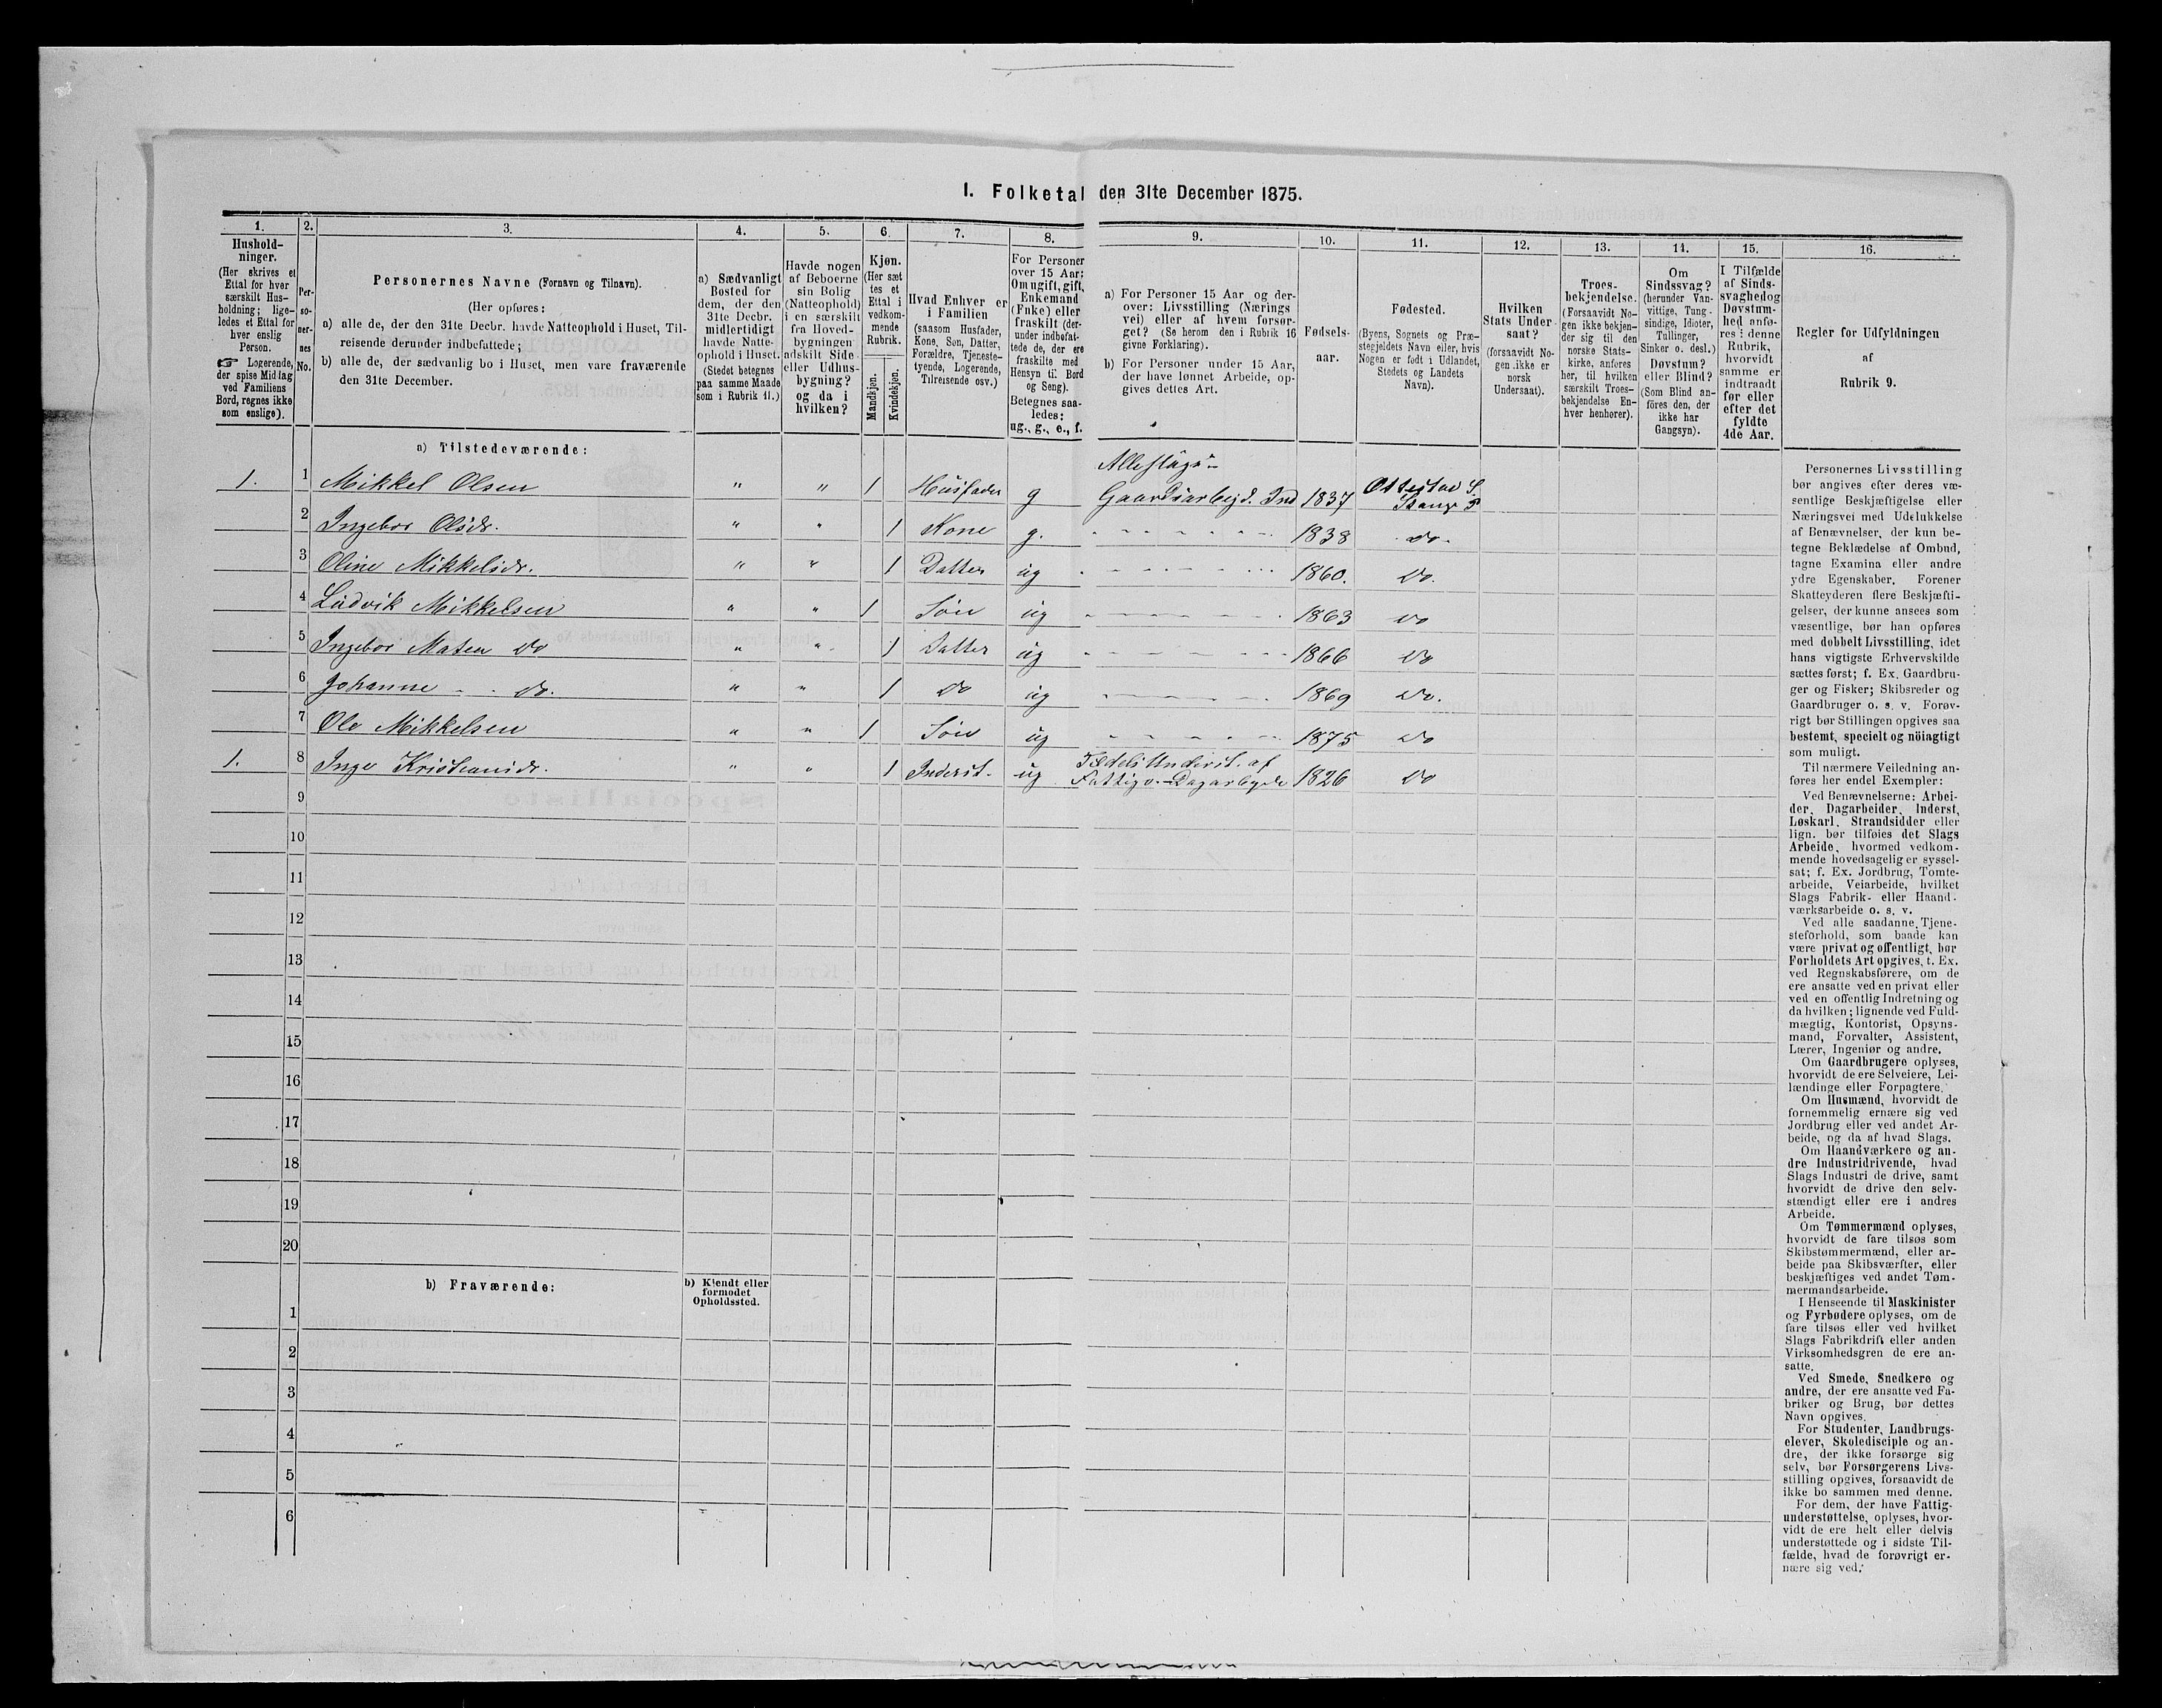 I. Folketal den 31te December 1875.
1.
Hushold-
ninger.
(Her skrives et
Ettal for hver
særskilt Hus-
holdning; lige-
ledes et Ettal for
hver enslig
Person.
☞ Logerende,
der spise Middag
ved Familiens
Bord, regnes ikke
som enslige).
2.
Per-
so-
ner-
nes
No.
3.
Personernes Navne (Fornavn og Tilnavn).
(Her opføres:
a) alle de, der den 31te Decbr. havde Natteophold i Huset, Til-
reisende derunder indbefattede;
b) alle de, der sædvanlig bo i Huset, men vare fraværende
den 31te December.
4.
a) Sædvanligt
Bosted for
dem, der den
31te Decbr.
midlertidigt
havde Natte-
ophold i Huset.
(Stedet betegnes
paa samme Maade
som i Rubrik 11.)
5.
Havde nogen
af Beboerne
sin Bolig
(Natteophold)
i en særskilt
fra Hoved-
bygningen
adskilt Side-
eller Udhus-
bygning?
og da i
hvilken?
6.
Kjøn.
(Her sæt
tes et
Ettal i
vedkom-
mende
Rubrik.
Mandkjøn.
Kvindekjøn.
7.
Hvad Enhver er
i Familien
(saasom Husfader,
Kone, Søn, Datter,
Forældre, Tjeneste-
tyende, Logerende,
Tilreisende osv.)
8.
For Personer
over 15 Aar:
Om ugift, gift,
Enkemand
(Enke) eller
fraskilt (der-
under indbefat-
tede de, der ere
fraskilte med
Hensyn til Bord
og Seng).
Betegnes saa-
ledes:
ug., g., e., f.
9.
a) For Personer 15 Aar og der-
over: Livsstilling (Nærings
vei) eller af hvem forsør-
get? (Se herom den i Rubrik 16
givne Forklaring).
b) For Personer under 15 Aar,
der have lønnet Arbeide, op-
gives dettes Art.
10.
Fødsels-
aar.
11.
Fødested.
(Byens, Sognets og Præ-
stegjeldets Navn eller, hvis
Nogen er født i Udlandet,
Stedets og Landets
Navn).
12.
Hvilken
Stats Under-
saat?
(forsaavidt No-
gen ikke er
norsk
Undersaat).
13.
Troes-
bekjendelse.
(Forsaavidt No-
gen ikke bekjen-
der sig til den
norske Stats-
kirke, anføres
her, til hvilken
særskilt Troes-
bekjendelse En-
hver henhører).
14.
Om
Sindssvag?
(herunder Van-
vittige, Tung-
sindige, Idioter,
Tullinger,
Sinker o. desl.)
Døvstum?
eller Blind?
(Som Blind an-
føres den, der
ikke har
Gangsyn).
15.
I Tilfælde
af Sinds-
svaghed og
Døvstum-
hed anfø-
res i denne
Rubrik,
hvorvidt
samme er
indtraadt
før eller
efter det
fyldte
4de Aar.
16.
Regler for Udfyldningen
af
Rubrik 9.
a) Tilstedeværende:
Alleslags
1. 1 Mikkel Olsen " " 1 Husfader g Gaardsarbejd. Ind 1837 Ottestad S. Stange P
2 Ingebor Olsdr. " " 1 Kone g. 1838 do.
3 Oline Mikkelsdr. " " 1 Datter ug 1860. do.
4 Ludvik Mikkelsen " " 1 Søn ug 1863 do
5 Ingebor Maten do " " 1 Datter ug 1866 do
6 Johanne do. " " 1 do ug 1869 do.
7 Ole Mikkelsen " " 1 Søn ug 1875 do
1. 8 Inge Kristiansdr. " " 1 Inderst. ug Underst. af Fattigv. Dagarbejde 1826 do
9
10
11
12
13
14
15
16
17
18
19
20
b) Fraværende:
b) Kjendt eller
formodet
Opholdssted.
1
2
3
4
5
6
Personernes Livsstilling
bør angives efter deres væ-
sentlige Beskjæftigelse eller
Næringsvei med Udelukkelse
af Benævnelser, der kun be-
tegne Beklædelse af Ombud,
tagne Examina eller andre
ydre Egenskaber. Forener
Skatteyderen flere Beskjæfti-
gelser, der kunne ansees som
væsentlige, bør han opføres
med dobbelt Livsstilling, idet
hans vigtigste Erhvervskilde
sættes først; f. Ex. Gaardbru-
ger og Fisker; Skibsreder og
Gaardbruger o. s. v. Forøv-
rigt bør Stillingen opgives saa
bestemt, specielt og nöiagtigt
som muligt.
Til nærmere Veiledning an-
føres her endel Exempler:
Ved Benævnelserne: Arbei-
der, Dagarbeider, Inderst,
Løskarl, Strandsidder eller
lign. bør tilføies det Slags
Arbeide, hvormed vedkom-
mende hovedsagelig er syssel-
sat; f. Ex. Jordbrug, Tomte-
arbeide, Veiarbeide, hvilket
Slags Fabrik- eller Haand-
værksarbeide o. s. v.
Ved alle saadanne Tjene-
steforhold, som baade kan
være privat og offentligt, bør
Forholdets Art opgives, t. Ex.
ved Regnskabsførere, om de
ere ansatte ved en privat eller
ved en offentlig Indretning og
da hvilken; lignende ved Fuld-
mægtig, Kontorist, Opsyns-
mand, Forvalter, Assistent,
Lærer, Ingeniør og andre.
Om Gaardbrugere oplyses,
hvorvidt de ere Selveiere, Lei-
lændinge eller Forpagtere.
Om Husmænd, hvorvidt de
fornemmelig ernære sig ved
Jordbrug eller ved andet Ar-
beide, og da af hvad Slags.
Om Haandværkere og an-
dre Industridrivende, hvad
Slags Industri de drive, samt
hvorvidt de drive den selv-
stændigt eller ere i andres
Arbeide.
Om Tømmermænd oplyses,
hvorvidt de fare tilsøs som
Skibstømmermænd, eller ar-
beide paa Skibsværfter, eller
beskjæftiges ved andet Tøm-
mermandsarbeide.
I Henseende til Maskinister
og Fyrbødere oplyses, om de
fare tilsøs eller ved hvilket
Slags Fabrikdrift eller anden
Virksomhedsgren de ere an-
satte.
Ved Smede, Snedkere og
andre, der ere ansatte ved Fa-
briker og Brug, bør dettes
Navn opgives.
For Studenter, Landbrugs-
elever, Skoledisciple og an-
dre, der ikke forsørge sig
selv, bør Forsørgerens Livs-
stilling opgives, forsaavidt de
ikke bo sammen med denne.
For dem, der have Fattig-
understøttelse, oplyses, hvor-
vidt de ere helt eller delvis
understøttede og i sidste Til-
fælde, hvad de forøvrigt er-
nære sig ved.